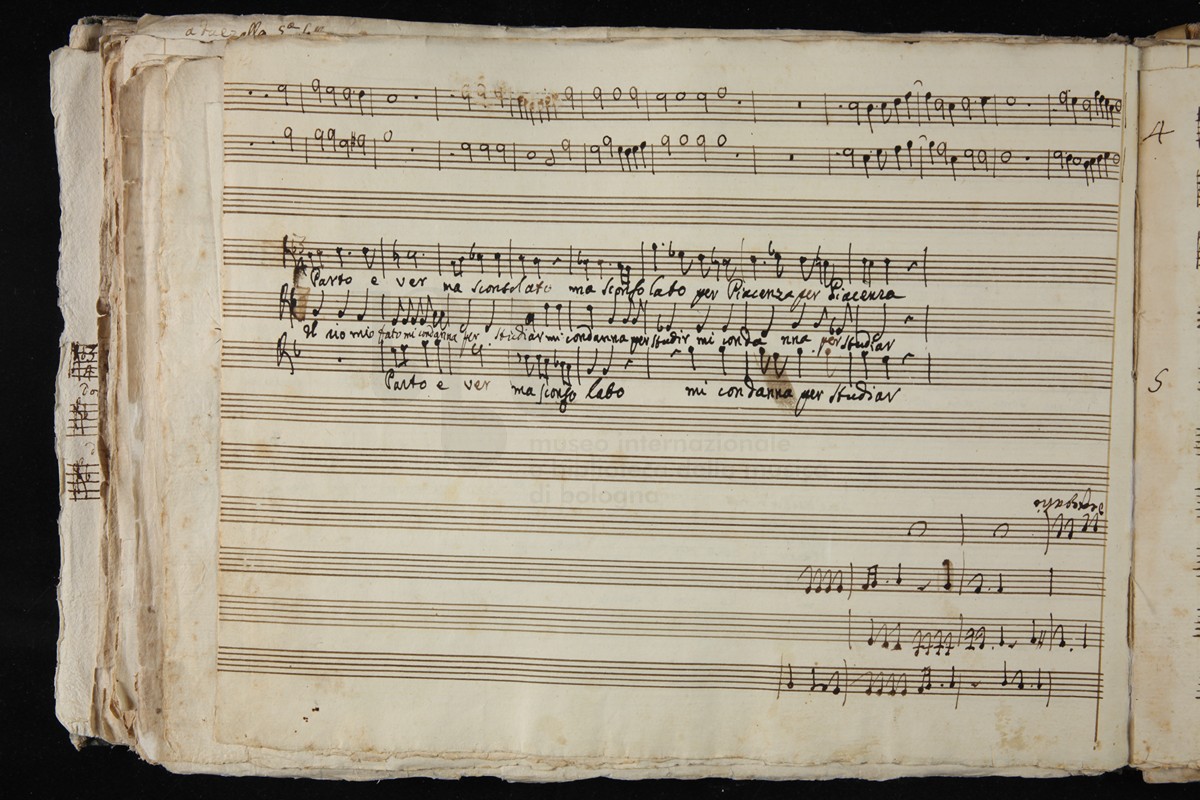 Parto e ver ma sconsolato ma sconso lato per Piacenza per Piacenza
Il rio mio fato mi condanna per studiar mi condanna per studir mi conda nna per studiar
Parto e ver ma sconso lato mi condanna per studiar
museo internazionale
e biblioteca della musica
di bologna
A
5